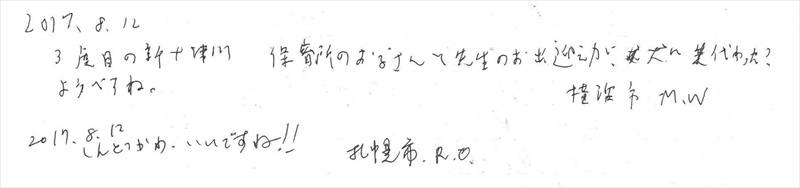 2017. 8. 12
3度目の新十津川 保育所のお子さんと先生のお出迎えが、犬に代わった?
ようですね。
横浜市 M.W
2017. 8. 12
しんとつかわ. いいですね!!
札幌市. R.O.